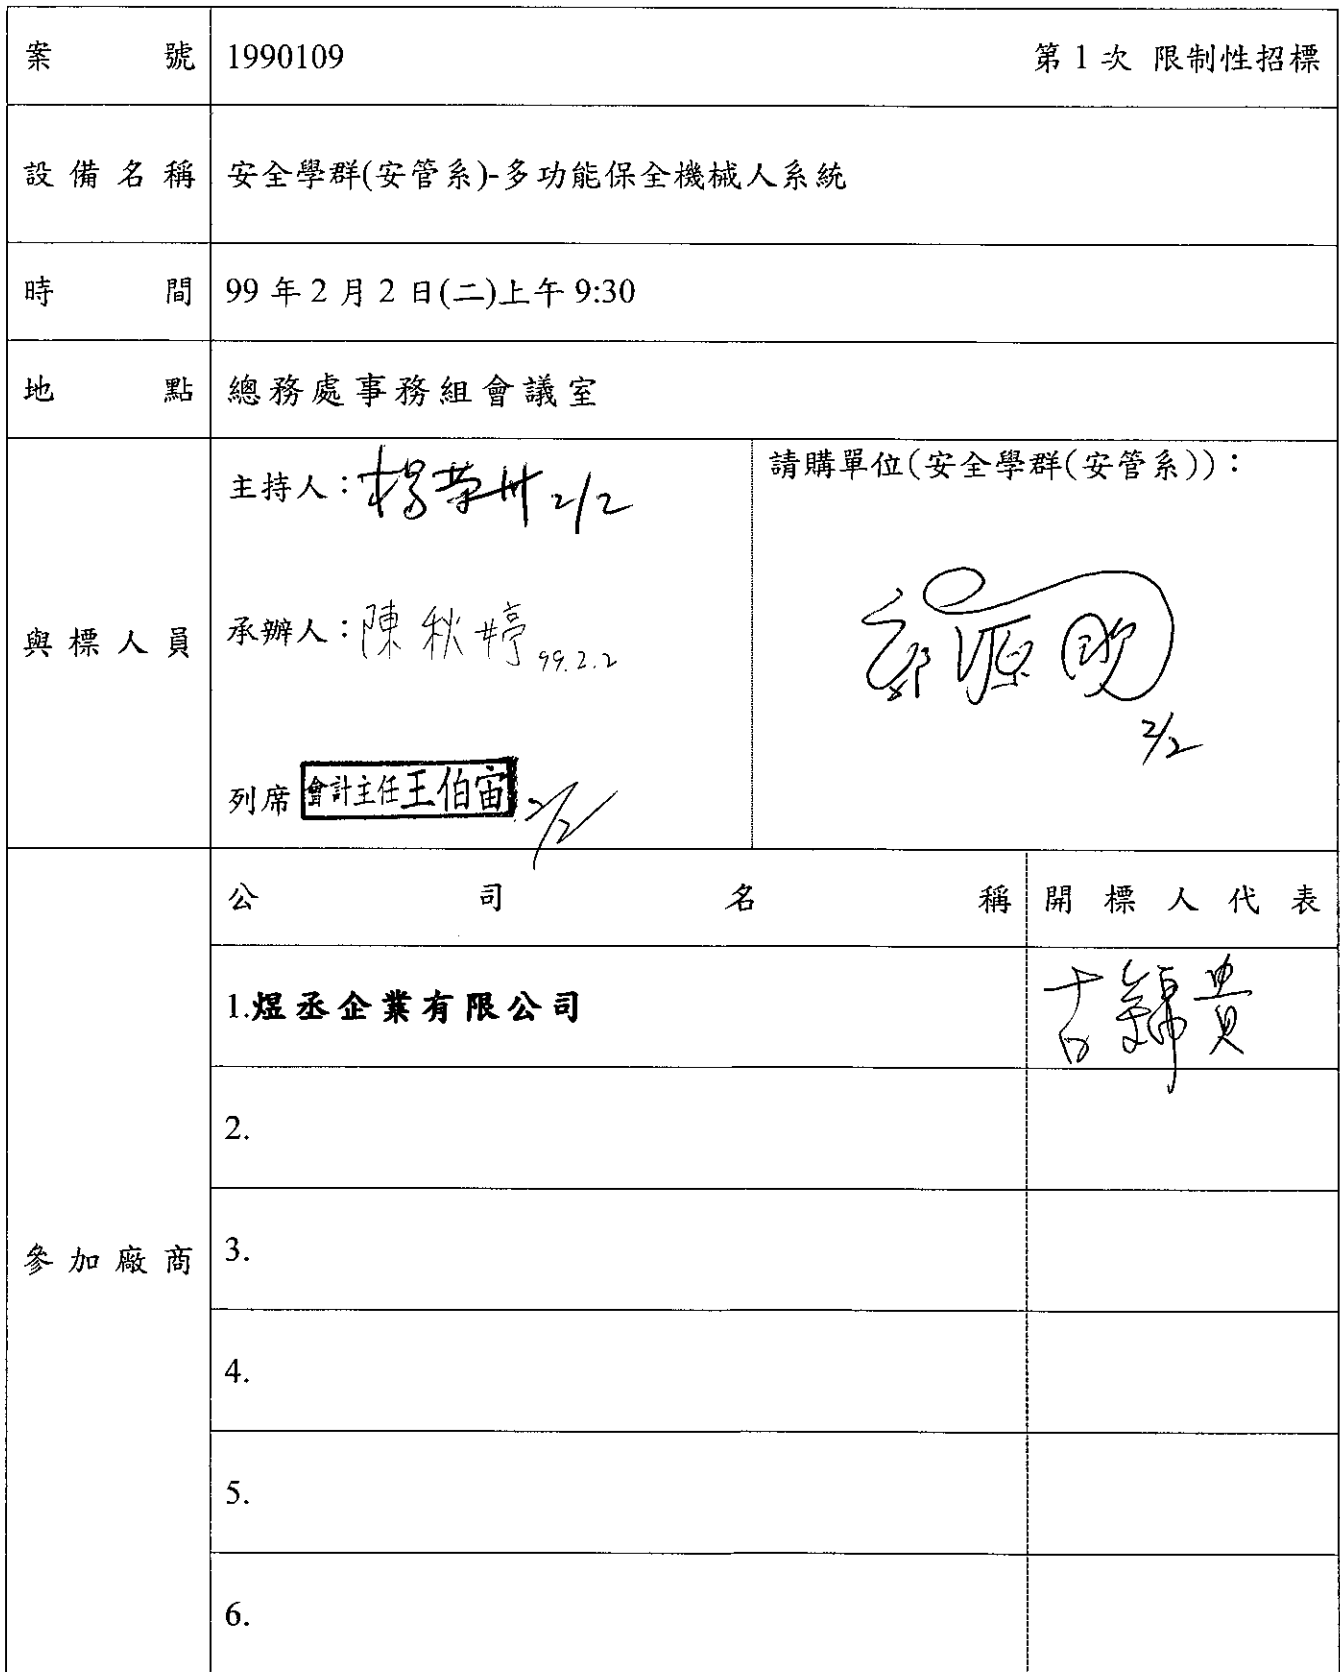 案號 1990109 第1次 限制性招標
設備名稱 安全學群(安管系)-多功能保全機械人系統
時間 99年2月2日(二)上午9:30
地點 總務處事務組會議室
與標人員
主持人：楊荣卅 2/2
請購單位(安全學群(安管系))：
承辦人：陳秋婷 99.2.2
2/2
列席 會計主任王伯宙 2/2
參加廠商
公司名稱 開標人代表
1.煜丞企業有限公司 古錦貴
2.
3.
4.
5.
6.